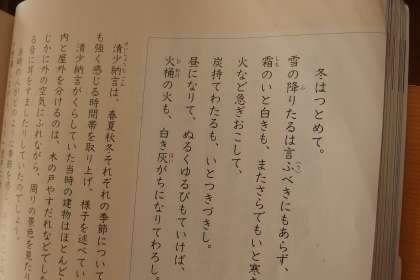 冬はつとめて。
雪の降りたるは言ふ(う)べきにもあらず、
霜のいと白きも、またさらでもいと寒
火など急ぎおこして、
炭持てわたるも、いとつきづきし。
昼になりて、ぬるくゆるびもていけば、
火桶の火も、白き灰がちになりてわろし。
清少納言は、春夏秋冬それぞれの季節について
も強く感じる時間帯を取り上げ、様子を述べてい
清少納言がくらしていた当時の建物はほとんど
内と屋外を分けるのは、木の戸やすだれなどでし
じかに外の空気にふれながら、周りの景色を見たり
る音に耳をすましたりしていたのでしょう。